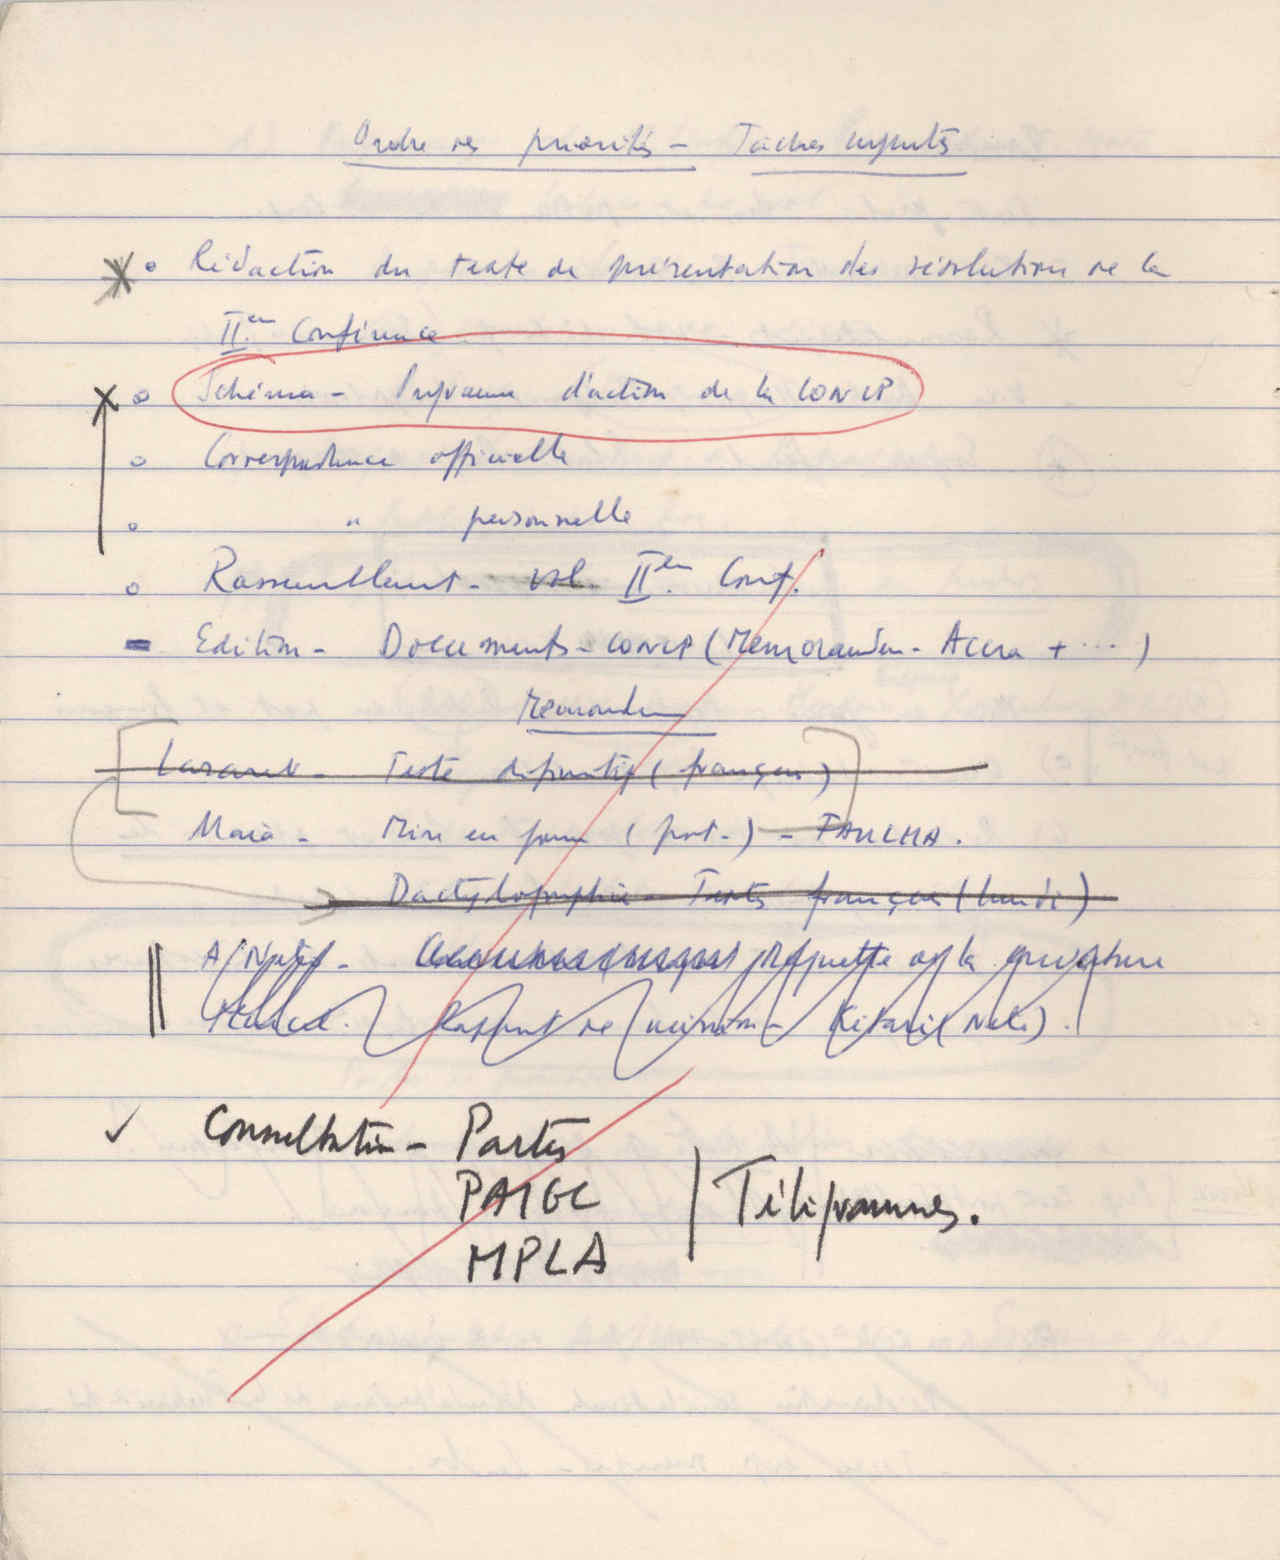 Ordre des priorités - Tâches urgentes
Rédaction du texte de présentation des résolutions de la
IIème Conférence
Schéma - Programme d'action de la CONCP
Correspondance officielle
" personnelle
Rassemblement - vol. IIème Conf.
Edition - Documents - CONCP (Memorandum - Accra + ...)
Memorandum
- Texte définitif (français)
Maria - Mise en forme (port.) -
Dactylographie - Textes français (lundi)
- Maquette de la
Rapport de
Consultation - Partis
PAIGC
MPLA
Télégrammes.